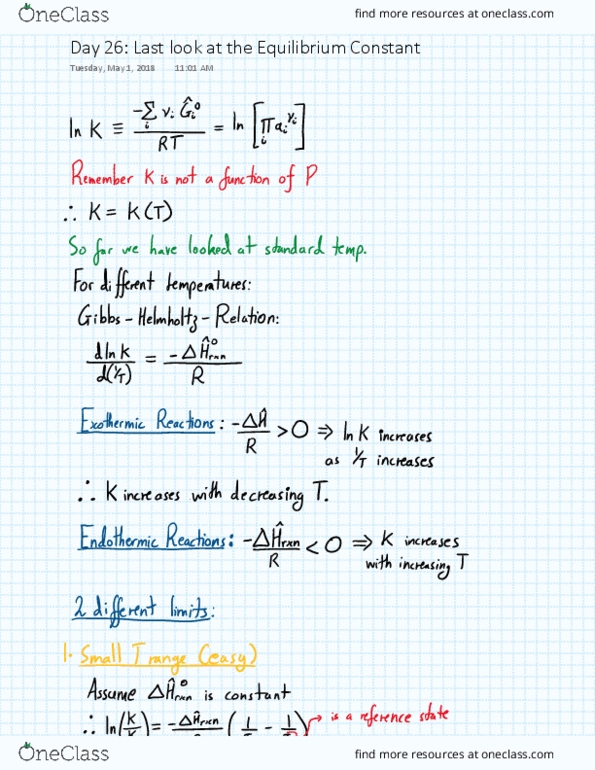 OneClass
find more resources at oneclass.com
Day 26: Last look at the Equilibrium Constant
Tuesday, May 1, 2018 11:01 AM
ln K ≡ -Σᵢ νᵢ Ĝᵢ° / RT = ln [∏ᵢ aᵢ^νᵢ]
Remember K is not a function of P
∴ K = K(T)
So far we have looked at standard temp.
For different temperatures:
Gibbs-Helmholtz-Relation:
dlnK / d(1/T) = -ΔĤ°rxn / R
Exothermic Reactions: -ΔĤ / R > 0 ⇒ ln K increases
as 1/T increases
∴ K increases with decreasing T.
Endothermic Reactions: -ΔĤrxn / R < 0 ⇒ K increases
with increasing T
2 different limits:
1. Small T range (easy)
Assume ΔĤ°rxn is constant
∴ ln(K/K) = -ΔĤrxn ( 1 - 1 ) → is a reference state
OneClass
find more resources at oneclass.com